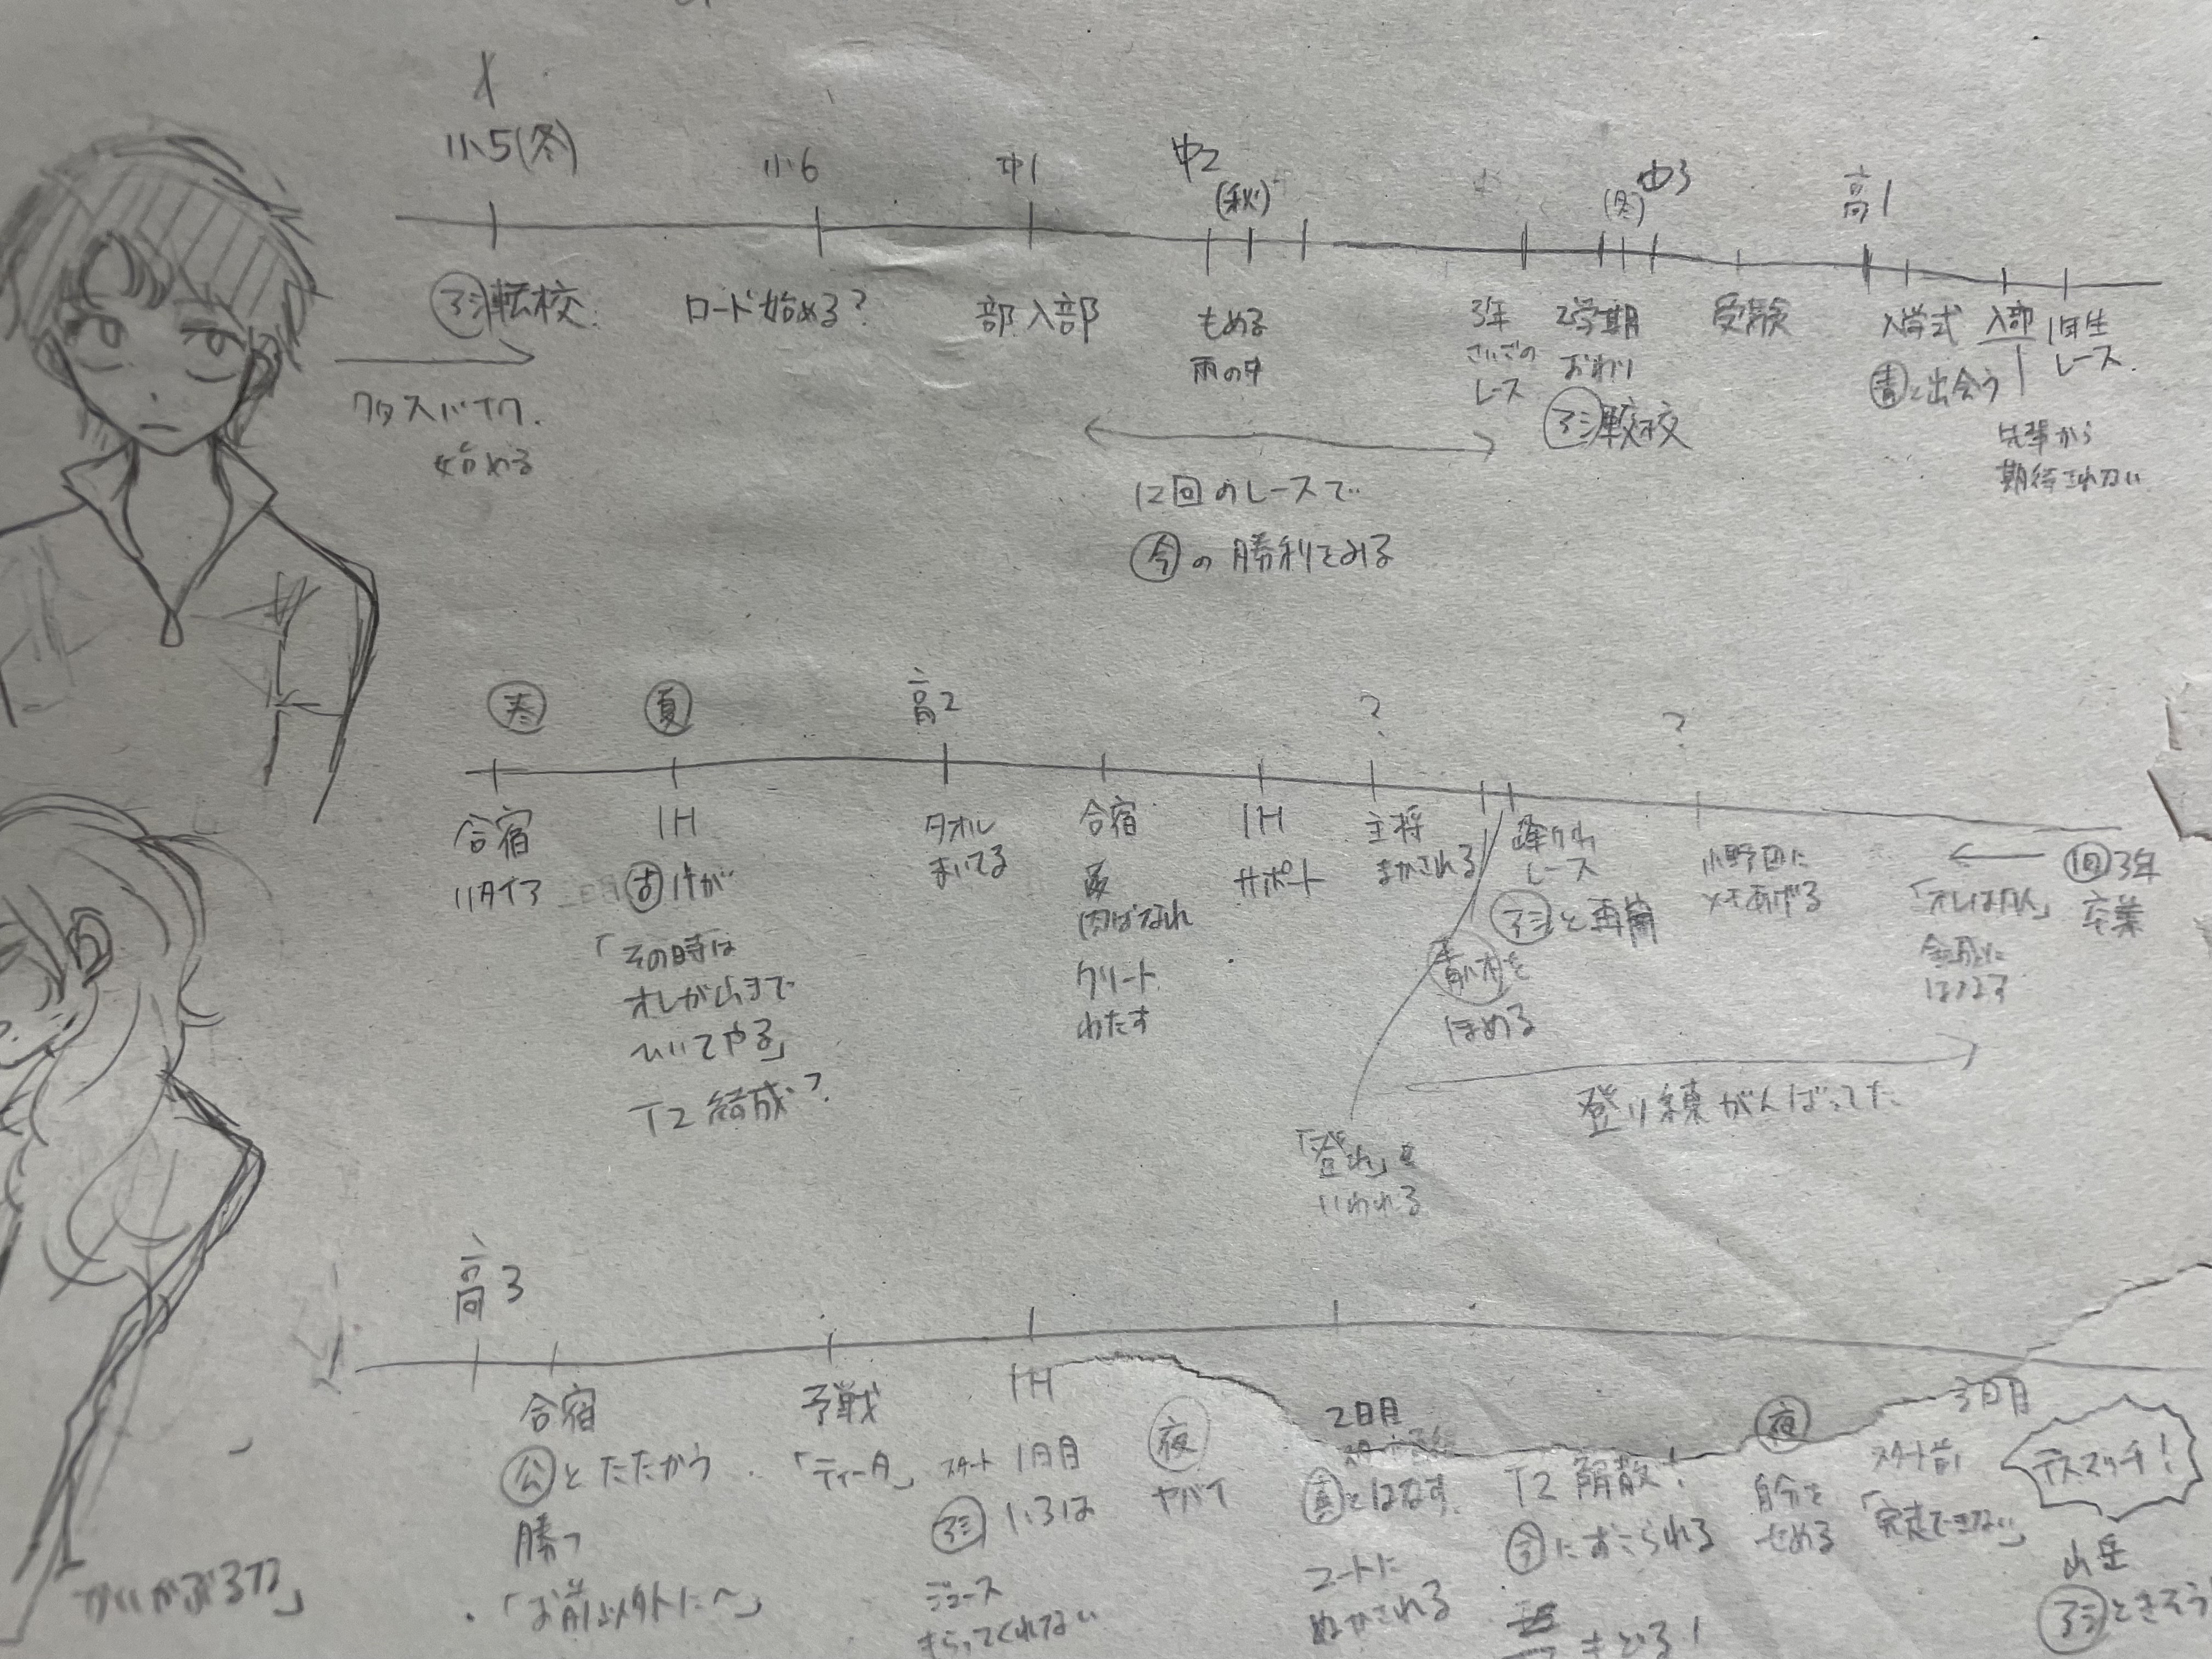 小5(冬)
小6
中1
中2
(秋)
(冬)
中3
高1
アシ転校
ロード始める?
部入部
もめる
雨の中
3年
さいごの
レース
2学期
おわり
アシ転校
受験
入学式
青と出会う
入部
先輩から
期待されない
1年生
レース
クロスバイク
始める
12回のレースで
今の勝利をみる
春
夏
高2
?
?
合宿
リタイア
IH
けが
「その時は
オレが山まで
ひいてやる」
T2 結成?
タオル
まいてる
合宿
肉ばなれ
クリート
わたす
IH
サポート
主将
まかされる
峰ヶ山
レース
アシと再開
青八木を
ほめる
小野田に
「オレは凡人」
回3年
卒業
登り練がんばってた
「登れ」と
いわれる
高3
合宿
公とたたかう
勝つ
「お前以外に〜」
予戦
「ティータ」
IH
スタート 1日目
アシ いろは
ジュース
もらってくれない
夜
ヤバイ
2日目
とはなす
ユートに
ぬかされる
T2 解散!
今におこられる
もどる!
夜
自分を
せめる
3日目
スタート前
「完走できない」
デスマッチ!
山岳
アシときそう
「かいかぶるな」